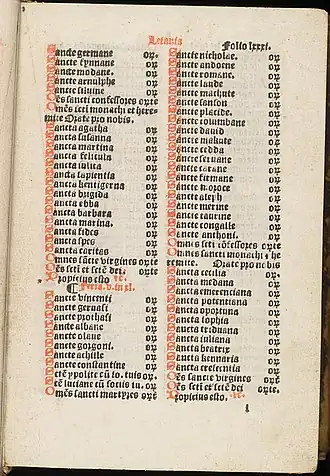 Letania
Folio lxxxi.
Sancte germane oꝝ
Sancte fynnane oꝝ
Sancte modane. oꝝ
Sancte arnulphe oꝝ
Sancte siluine oꝝ
Oēs sancti confessores orate
Oēs scti monachi et here
mite Orate pro nobis.
Sancta agatha oꝝ
Sancta susanna oꝝ
Sancta martina oꝝ
Sancta felicula oꝝ
Sancta iulita oꝝ
Sancta sapientia oꝝ
Sancta kentigerna oꝝ
Sancta brigida oꝝ
Sancta ebba oꝝ
Sancta barbara oꝝ
Sancta marina. oꝝ
Sancta fides oꝝ
Sancta spes oꝝ
Sancta caritas oꝝ
Omnes sancte virgines orate
Oēs scti et scte dei. orate
Propicius esto
¶ Feria. v. in xl.
Sancte vincenti oꝝ
Sancte geruasi oꝝ
Sancte prothasi oꝝ
Sancte albane oꝝ
Sancte olaue oꝝ
Sancte gorgoni. oꝝ
Sancte achille oꝝ
Sancte constantine oꝝ
Scte ypolite cū so. tuis oꝝ.
Scte luciane cū sociis tu. oꝝ
Omēs sancti martyres orate
Sancte nicholae. oꝝ
Sancte andoene oꝝ
Sancte romane. oꝝ
Sancte laude oꝝ
Sancte machute oꝝ
Sancte sanson oꝝ
Sancte placide. oꝝ
Sancte columbane oꝝ
Sancte dauid oꝝ
Sancte makute oꝝ
Sancte cedda oꝝ
Sancte seruane oꝝ
Sancte carane oꝝ
Sancte firmane oꝝ
Sancte moroce oꝝ
Sancte aleph oꝝ
Sancte merine oꝝ
Sancte taurine oꝝ
Sancte congalle oꝝ
Sancte anthoni. oꝝ
Omnes scti cōfessores orate
Omnes sancti monachi et he
remite. Orate pro nobis
Sancta cecilia oꝝ
Sancta medana oꝝ
Sancta emerenciana oꝝ
Sancta potentiana oꝝ
Sancta oportuna oꝝ
Sancta sophia oꝝ
Sancta triduana oꝝ
Sancta iuliana oꝝ
Sancta beatrix oꝝ
Sancta kennaria oꝝ
Sancta crescentia oꝝ
Oēs sancte virgines orate
Oēs scti et scte dei orate.
Propicius esto.
l